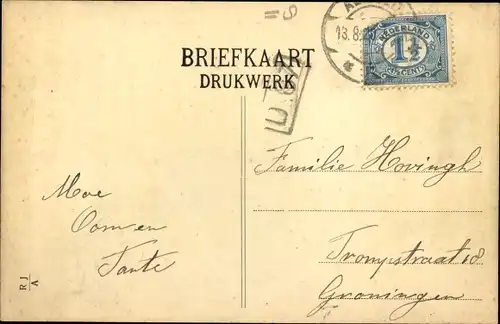 BRIEFKAART
DRUKWERK
13.8
NEDERLAND
1½
CENT
Moe
Oom en
Tante
Familie Hovingh
Trompstraat 18
Groningen
R J
A